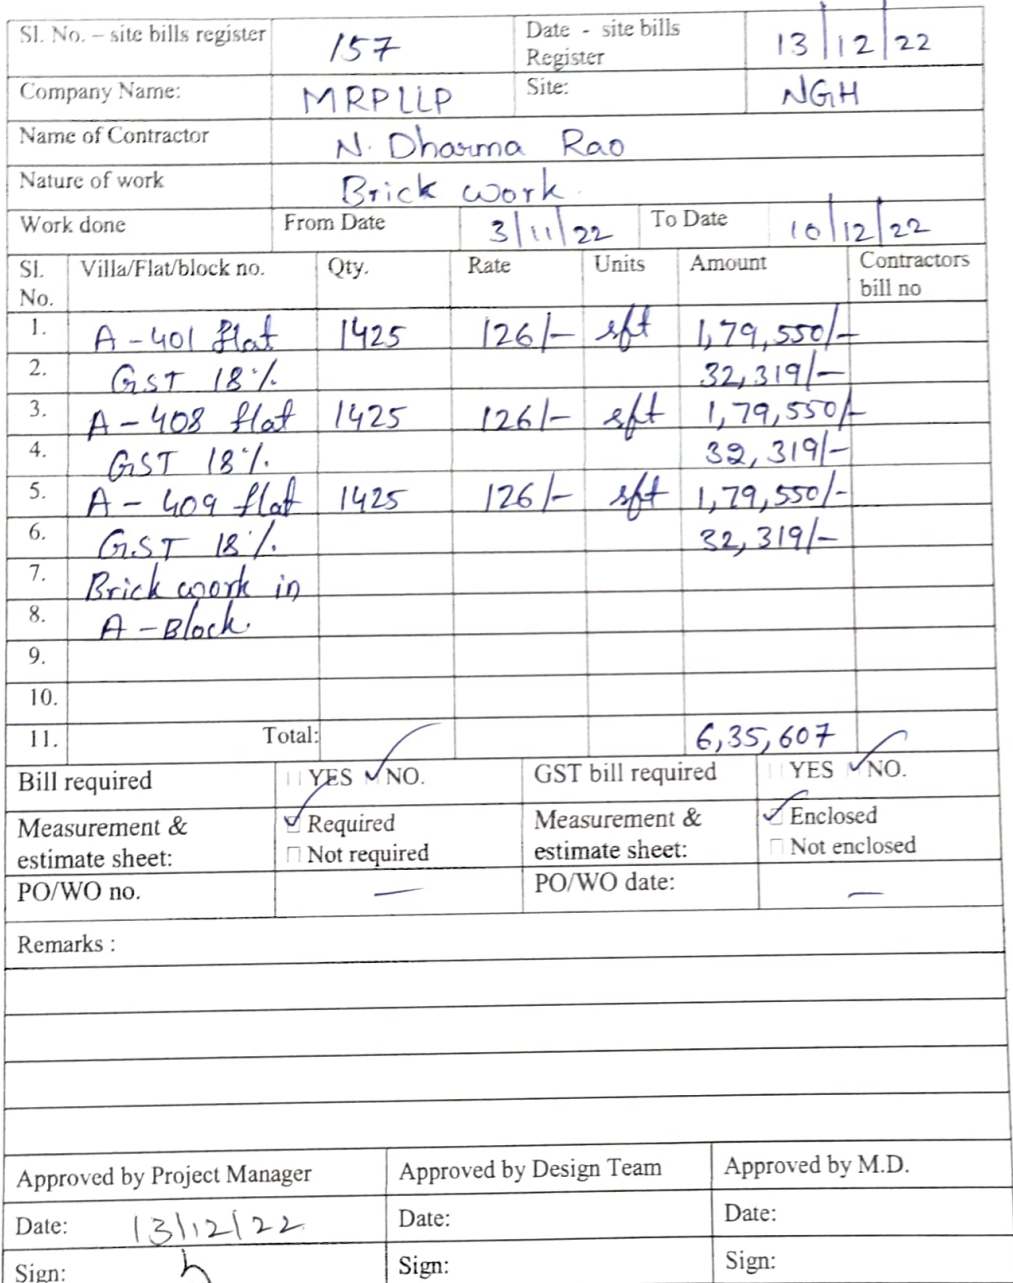 Sl. No. – site bills register 157 Date - site bills Register 13/12/22
Company Name: MRPLLP Site: NGH
Name of Contractor N. Dharma Rao
Nature of work Brick work.
Work done From Date 3/11/22 To Date 10/12/22
Sl. No. Villa/Flat/block no. Qty. Rate Units Amount Contractors bill no
1. A-401 flat 1425 126/- sft 1,79,550/-
2. GST 18% 32,319/-
3. A-408 flat 1425 126/- sft 1,79,550/-
4. GST 18%. 32,319/-
5. A-409 flat 1425 126/- sft 1,79,550/-
6. G.ST 18%. 32,319/-
7. Brick work in
8. A-Block.
9.
10.
11. Total: 6,35,607
Bill required YES ✓NO. GST bill required YES ✓NO.
Measurement & estimate sheet: ✓ Required □ Not required Measurement & estimate sheet: ✓ Enclosed □ Not enclosed
PO/WO no. — PO/WO date: —
Remarks :
Approved by Project Manager Approved by Design Team Approved by M.D.
Date: 13/12/22 Date: Date:
Sign: Sign: Sign: